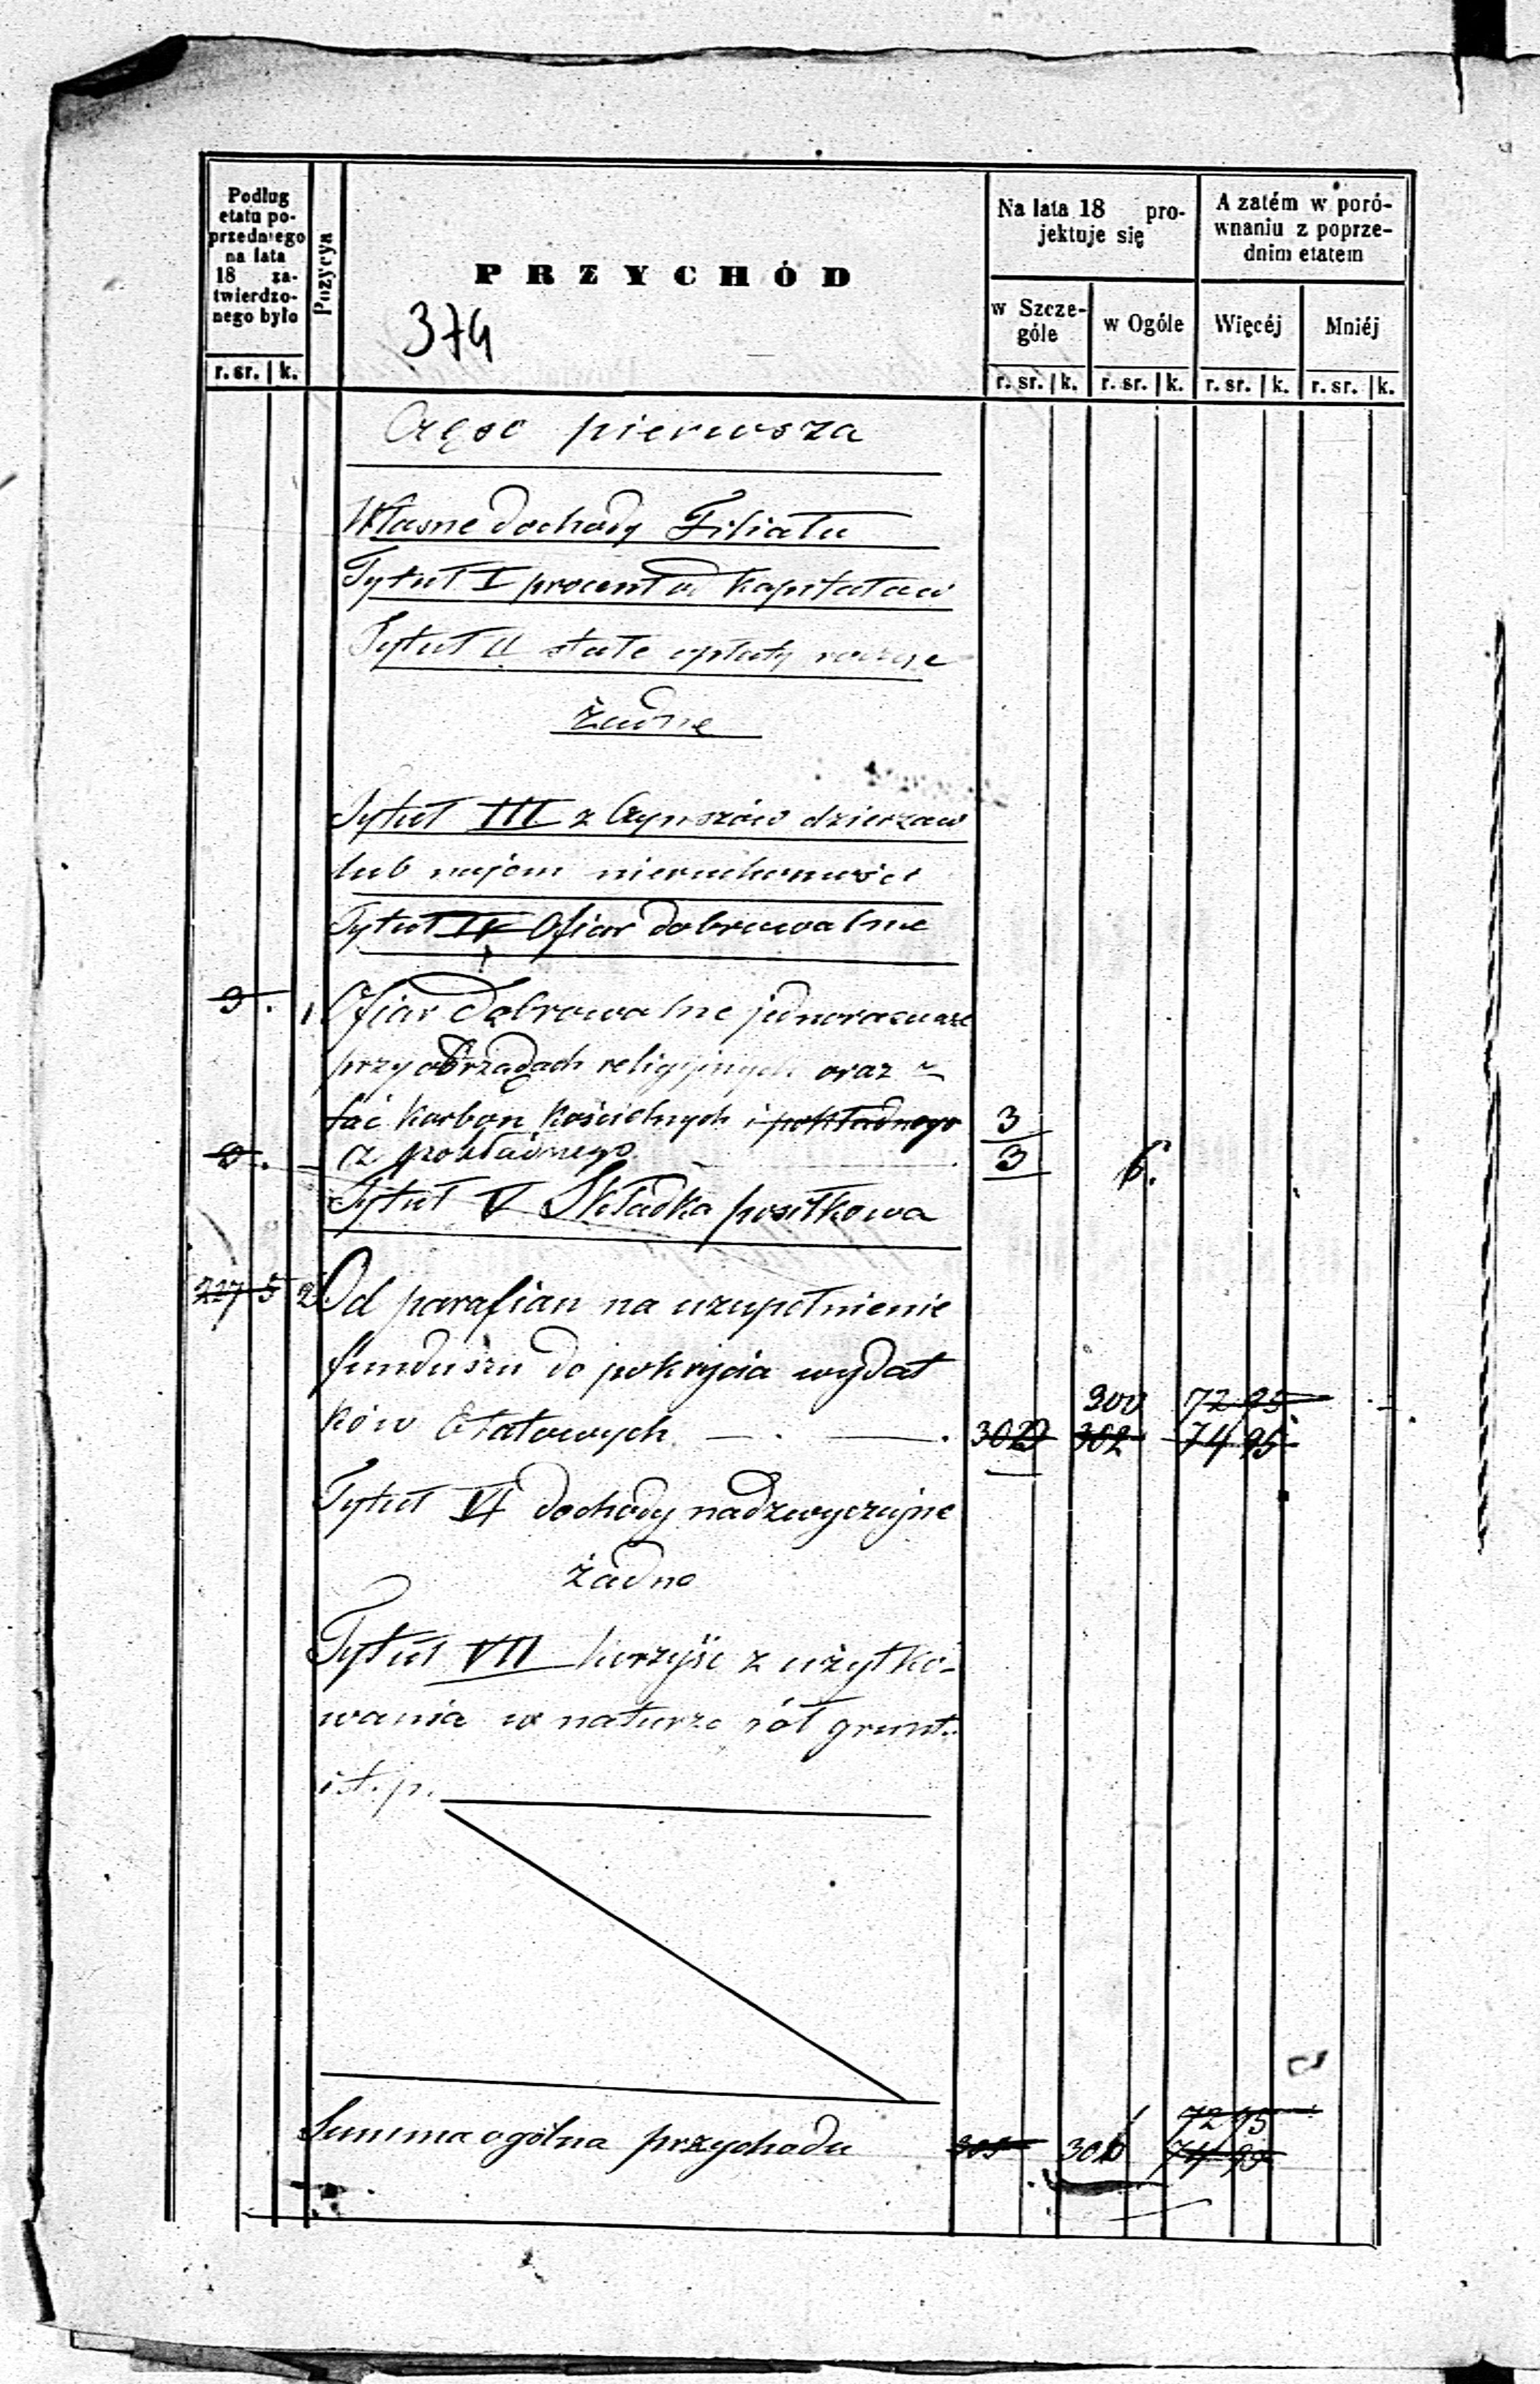 Podług
etatu po-
przedniego
na lata
18 za-
twierdzo-
nego było
Pozycya
PRZYCHÓD
Na lata 18 pro-
jektuje się
A zatém w poró-
wnaniu z poprze-
dnim etatem
w Szcze-
góle
w Ogóle
Więcéj
Mniéj
r. sr. k.
r. sr. k. r. sr. k. r. sr. k. r. sr. k.
374
Część pierwsza
Własne dochody Filiału
Tytuł I procent od Kapitałów
Tytuł II stałe opłaty roczne
Żadne
Tytuł III z Czynszów dzierzaw
lub najem nieruchomości
Tytuł IV Ofiar dobrowolne
3. 1 Ofiar Dobrowolne jednorazowe
przy obrządach religijnych oraz z
Karbon Kościelnych i pokładnego 3
pokładnego 3 6.
Tytuł V Składka posiłkowa
227 5 2 Od parafian na uzupełnienie
funduszu do pokrycia wydat
300 72 95
ków Etatowych 302 302 74 95
Tytuł VI dochody nadzwyczajne
żadne
Tytuł VII korzyść z użytko-
wania w naturze ról grunt.
i t. p.
72 95
Summa ogólna przychodu 305 306 74 95